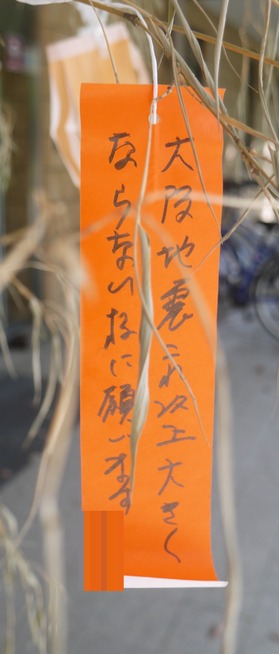 大阪地震これ以上大きく
ならない様に願います